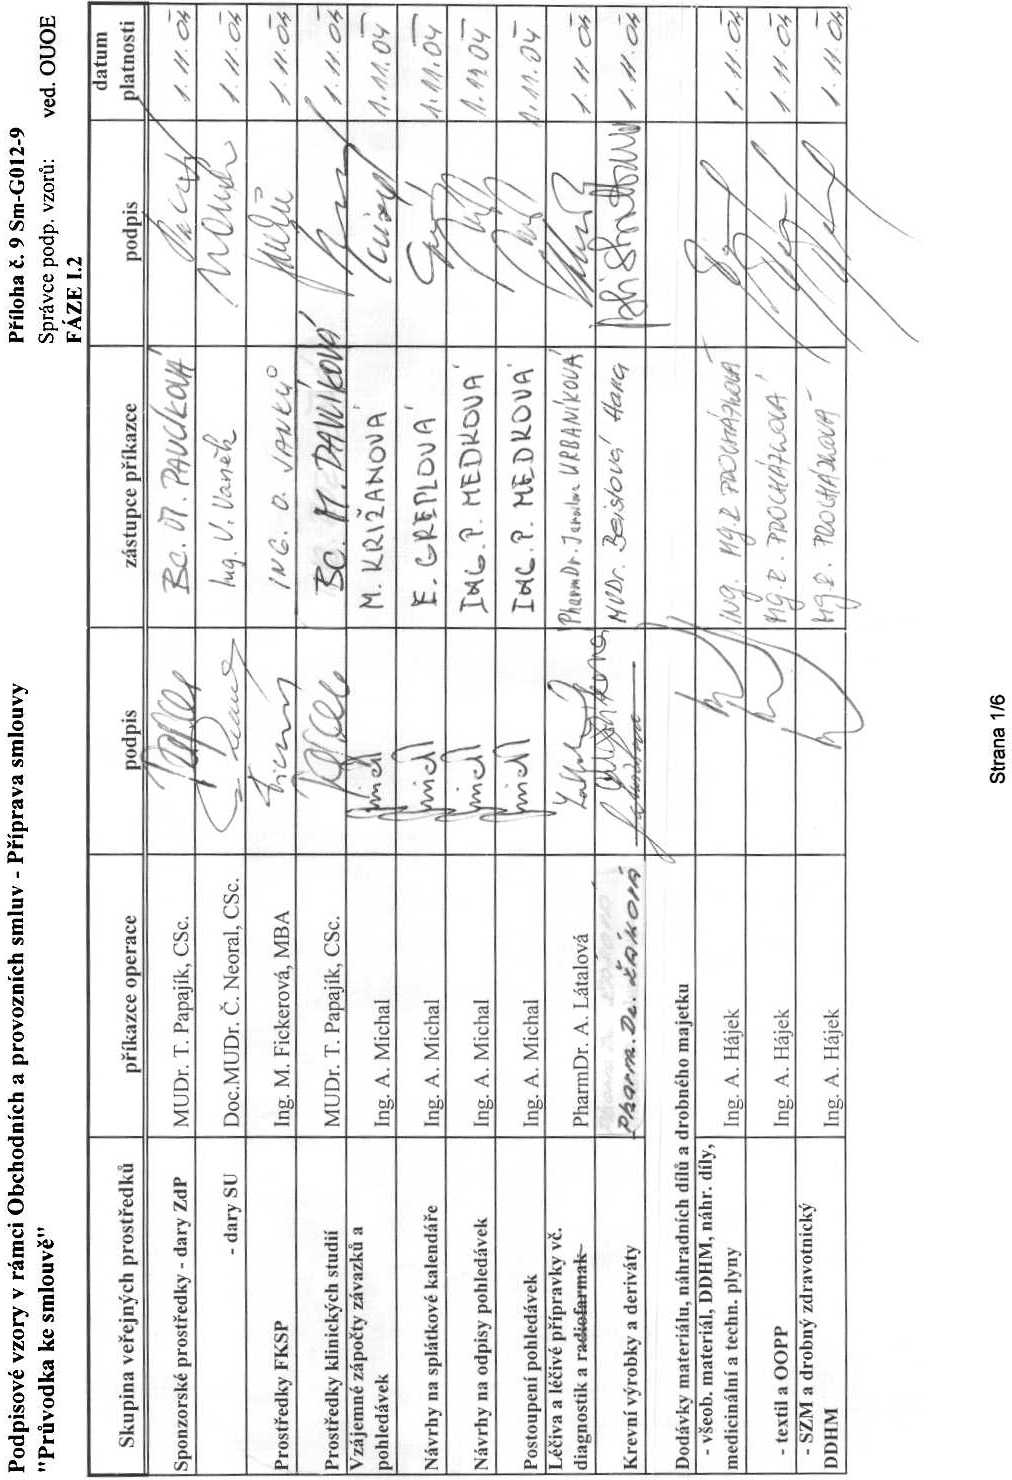 Podpisové vzory v rámci Obchodních a provozních smluv - Příprava smlouvy
"Průvodka ke smlouvě"
Příloha č. 9 Sm-G012-9
Správce podp. vzorů: ved. OUOE
FÁZE I.2
Skupina veřejných prostředků příkazce operace podpis zástupce příkazce podpis datum platnosti
Sponzorské prostředky - dary ZdP MUDr. T. Papajík, CSc. Bc. M. PAVLÍKOVÁ 1.11.04
- dary SU Doc.MUDr. Č. Neoral, CSc. Ing. V. Vaněk 1.11.04
Prostředky FKSP Ing. M. Fickerová, MBA ING. O. JANKŮ 1.11.04
Prostředky klinických studií MUDr. T. Papajík, CSc. Bc. M. PAVLÍKOVÁ 1.11.04
Vzájemné zápočty závazků a
pohledávek Ing. A. Michal M. KRIŽANOVÁ 1.11.04
Návrhy na splátkové kalendáře Ing. A. Michal E. GREPLOVÁ 1.11.04
Návrhy na odpisy pohledávek Ing. A. Michal ING. P. MEDKOVÁ 1.11.04
Postoupení pohledávek Ing. A. Michal ING. P. MEDKOVÁ 1.11.04
Léčiva a léčivé přípravky vč.
diagnostik a radiofarmak PharmDr. A. Látalová PharmDr. Jaroslava URBANÍKOVÁ 1.11.04
Krevní výrobky a deriváty Pharm.Dr. ŽÁKOVÁ MUDr. Hana 1.11.04
Dodávky materiálu, náhradních dílů a drobného majetku
- všeob. materiál, DDHM, náhr. díly,
medicinální a techn. plyny Ing. A. Hájek ING. MG. R. PROCHÁZKOVÁ 1.11.04
- textil a OOPP Ing. A. Hájek MG. R. PROCHÁZKOVÁ 1.11.04
- SZM a drobný zdravotnický
DDHM Ing. A. Hájek MG. R. PROCHÁZKOVÁ 1.11.04
Strana 1/6